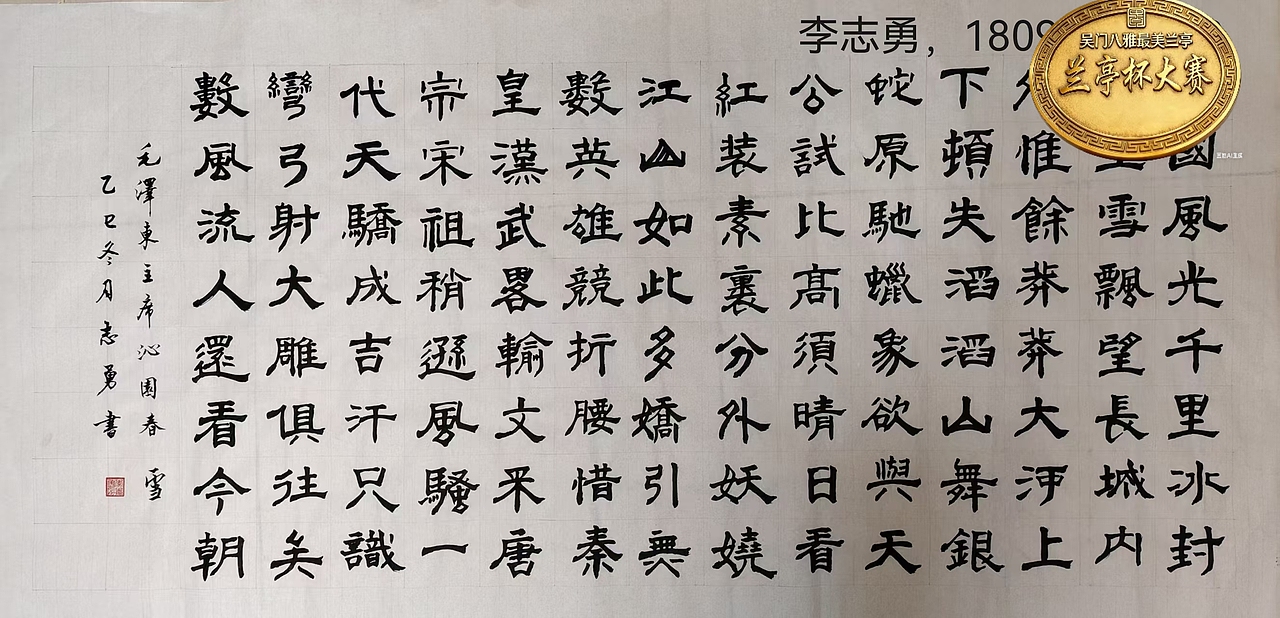 李志勇，1809
吴门八雅最美兰亭
兰亭杯大赛
國風光千里冰封
雪飄望長城内
惟餘莽莽大河上
下頓失滔滔山舞銀
蛇原馳蠟象欲與天
公試比高須晴日看
紅装素裹分外妖嬈
江山如此多嬌引無
數英雄競折腰惜秦
皇漢武畧輸文采唐
宗宋祖稍遜風騷一
代天驕成吉汗只識
彎弓射大雕俱往矣
數風流人還看今朝
毛澤東主席沁園春 雪
乙巳冬月志勇書